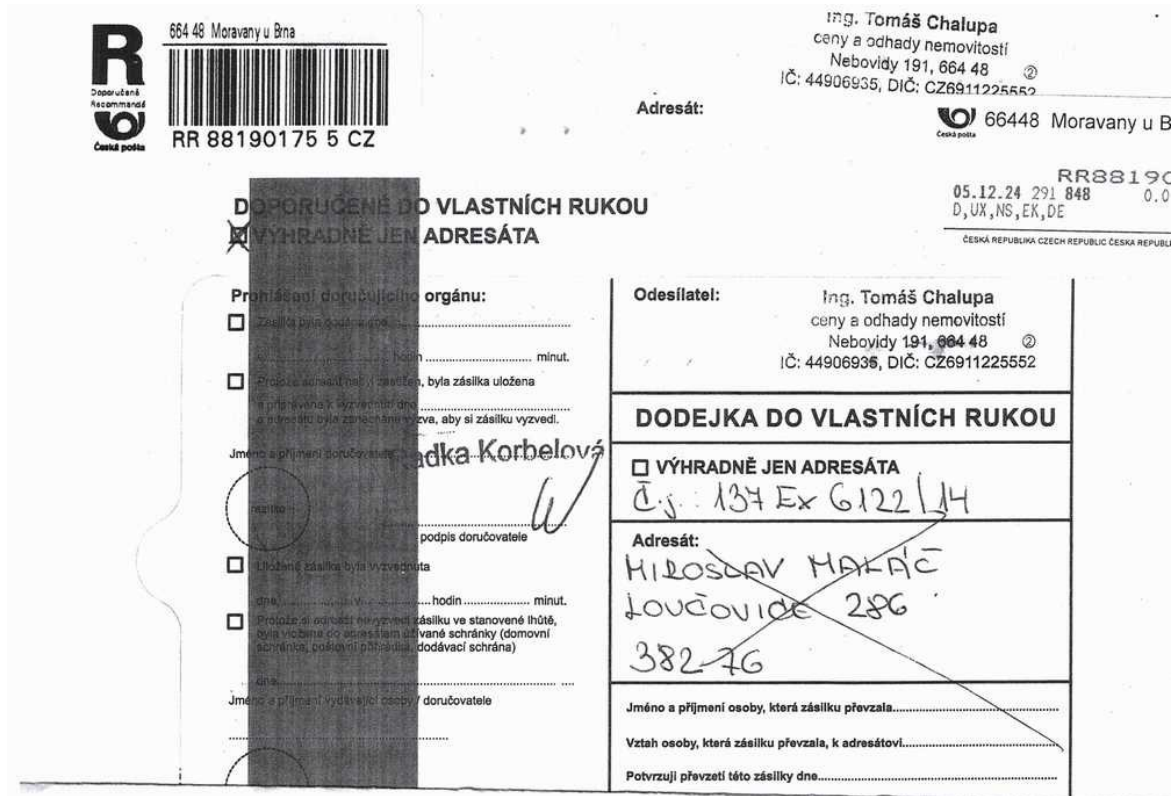 R
Doporučeně
Recommandé
Česká pošta
664 48 Moravany u Brna
RR 88190175 5 CZ
Ing. Tomáš Chalupa
ceny a odhady nemovitostí
Nebovidy 191, 664 48 ②
IČ: 44906935, DIČ: CZ6911225552
Adresát:
Česká pošta
66448 Moravany u B
RR8819
05.12.24 291 848 0.0
D,UX,NS,EK,DE
ČESKÁ REPUBLIKA CZECH REPUBLIC ČESKÁ REPUBL
DOPORUČENĚ DO VLASTNÍCH RUKOU
VÝHRADNĚ JEN ADRESÁTA
Prohlášení doručujícího orgánu:
Zásilka byla dodána dne
hodin minut.
Protože adresát nebyl zastižen, byla zásilka uložena
a připravena k vyzvednutí dne
a adresátu byla zanechána výzva, aby si zásilku vyzvedl.
Jméno a příjmení doručovatele
Radka Korbelová
razítko
podpis doručovatele
Uložená zásilka byla vyzvednuta
dne v hodin minut.
Protože si adresát nevyzvedl zásilku ve stanovené lhůtě,
byla vložena do adresátem užívané schránky (domovní
schránka, poštovní přihrádka, dodávací schrána)
dne
Jméno a příjmení vydávající osoby / doručovatele
Odesílatel:
Ing. Tomáš Chalupa
ceny a odhady nemovitostí
Nebovidy 191, 664 48 ②
IČ: 44906935, DIČ: CZ6911225552
DODEJKA DO VLASTNÍCH RUKOU
VÝHRADNĚ JEN ADRESÁTA
Č.j.: 137 Ex 6122/14
Adresát:
MIROSLAV MALÁČ
LOUČOVICE 286
382 76
Jméno a příjmení osoby, která zásilku převzala
Vztah osoby, která zásilku převzala, k adresátovi
Potvrzuji převzetí této zásilky dne